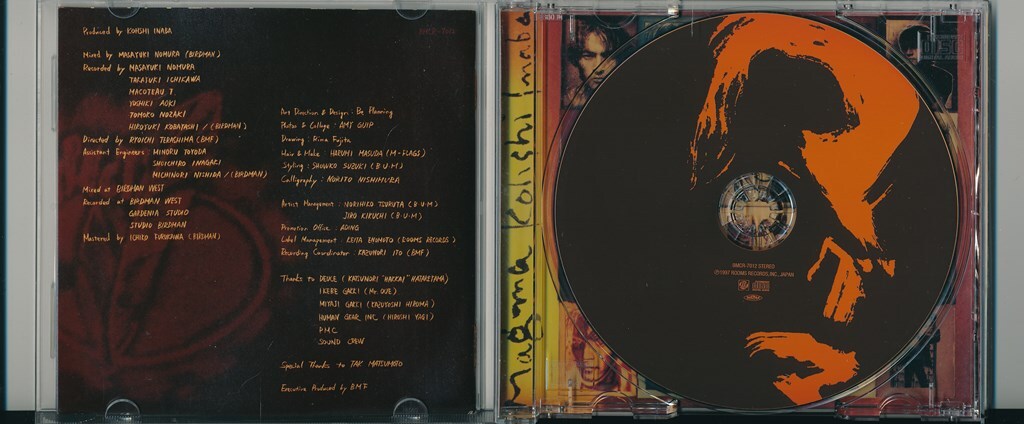 Produced by KOHSHI INABA
Mixed by MASAYUKI NOMURA (BIRDMAN)
Recorded by MASAYUKI NOMURA
TAKAYUKI ICHIKAWA
MACOTEAU T.
YOSHIKI AOKI
TOMOKO NOZAKI
HIROYUKI KOBAYASHI / (BIRDMAN)
Directed by RYOICHI TERASHIMA (BMF)
Assistant Engineers : MINORU TOYODA
SHOICHIRO INAGAKI
MICHINORI NISHIDA / (BIRDMAN)
Mixed at BIRDMAN WEST
Recorded at BIRDMAN WEST
GARDENIA STUDIO
STUDIO BIRDMAN
Mastered by ICHIKO FURUKAWA (BIRDMAN)
Art Direction & Design : Be Planning
Photos & Collage : AMY GUIP
Drawing : Rima Fujita
Hair & Make : HARUMI MASUDA (M-FLAGS)
Styling : SHOUKO SUZUKI (B・U・M)
Calligraphy : NORITO NISHIMURA
Artist Management : NORIHIKO TSURUTA (B・U・M)
JIRO KIKUCHI (B・U・M)
Promotion Office : ADING
Label Management : KEITA ENOMOTO (ROOMS RECORDS)
Recording Coordinator : KAZUNORI ITO (BMF)
Thanks to DEUCE (KATSUNORI "HAKKAI" HATAKEYAMA)
IKEBE GAKKI (Mr. OUE)
MIYAJI GAKKI (KAZUYOSHI HIROMA)
HUMAN GEAR INC. (HIROSHI YAGI)
P.M.C.
SOUND CREW
Special Thanks to TAK MATSUMOTO
Executive Produced by BMF
Magma Kohshi Inaba
BMCR-7012 STEREO
Ⓟ1997 ROOMS RECORDS, INC., JAPAN